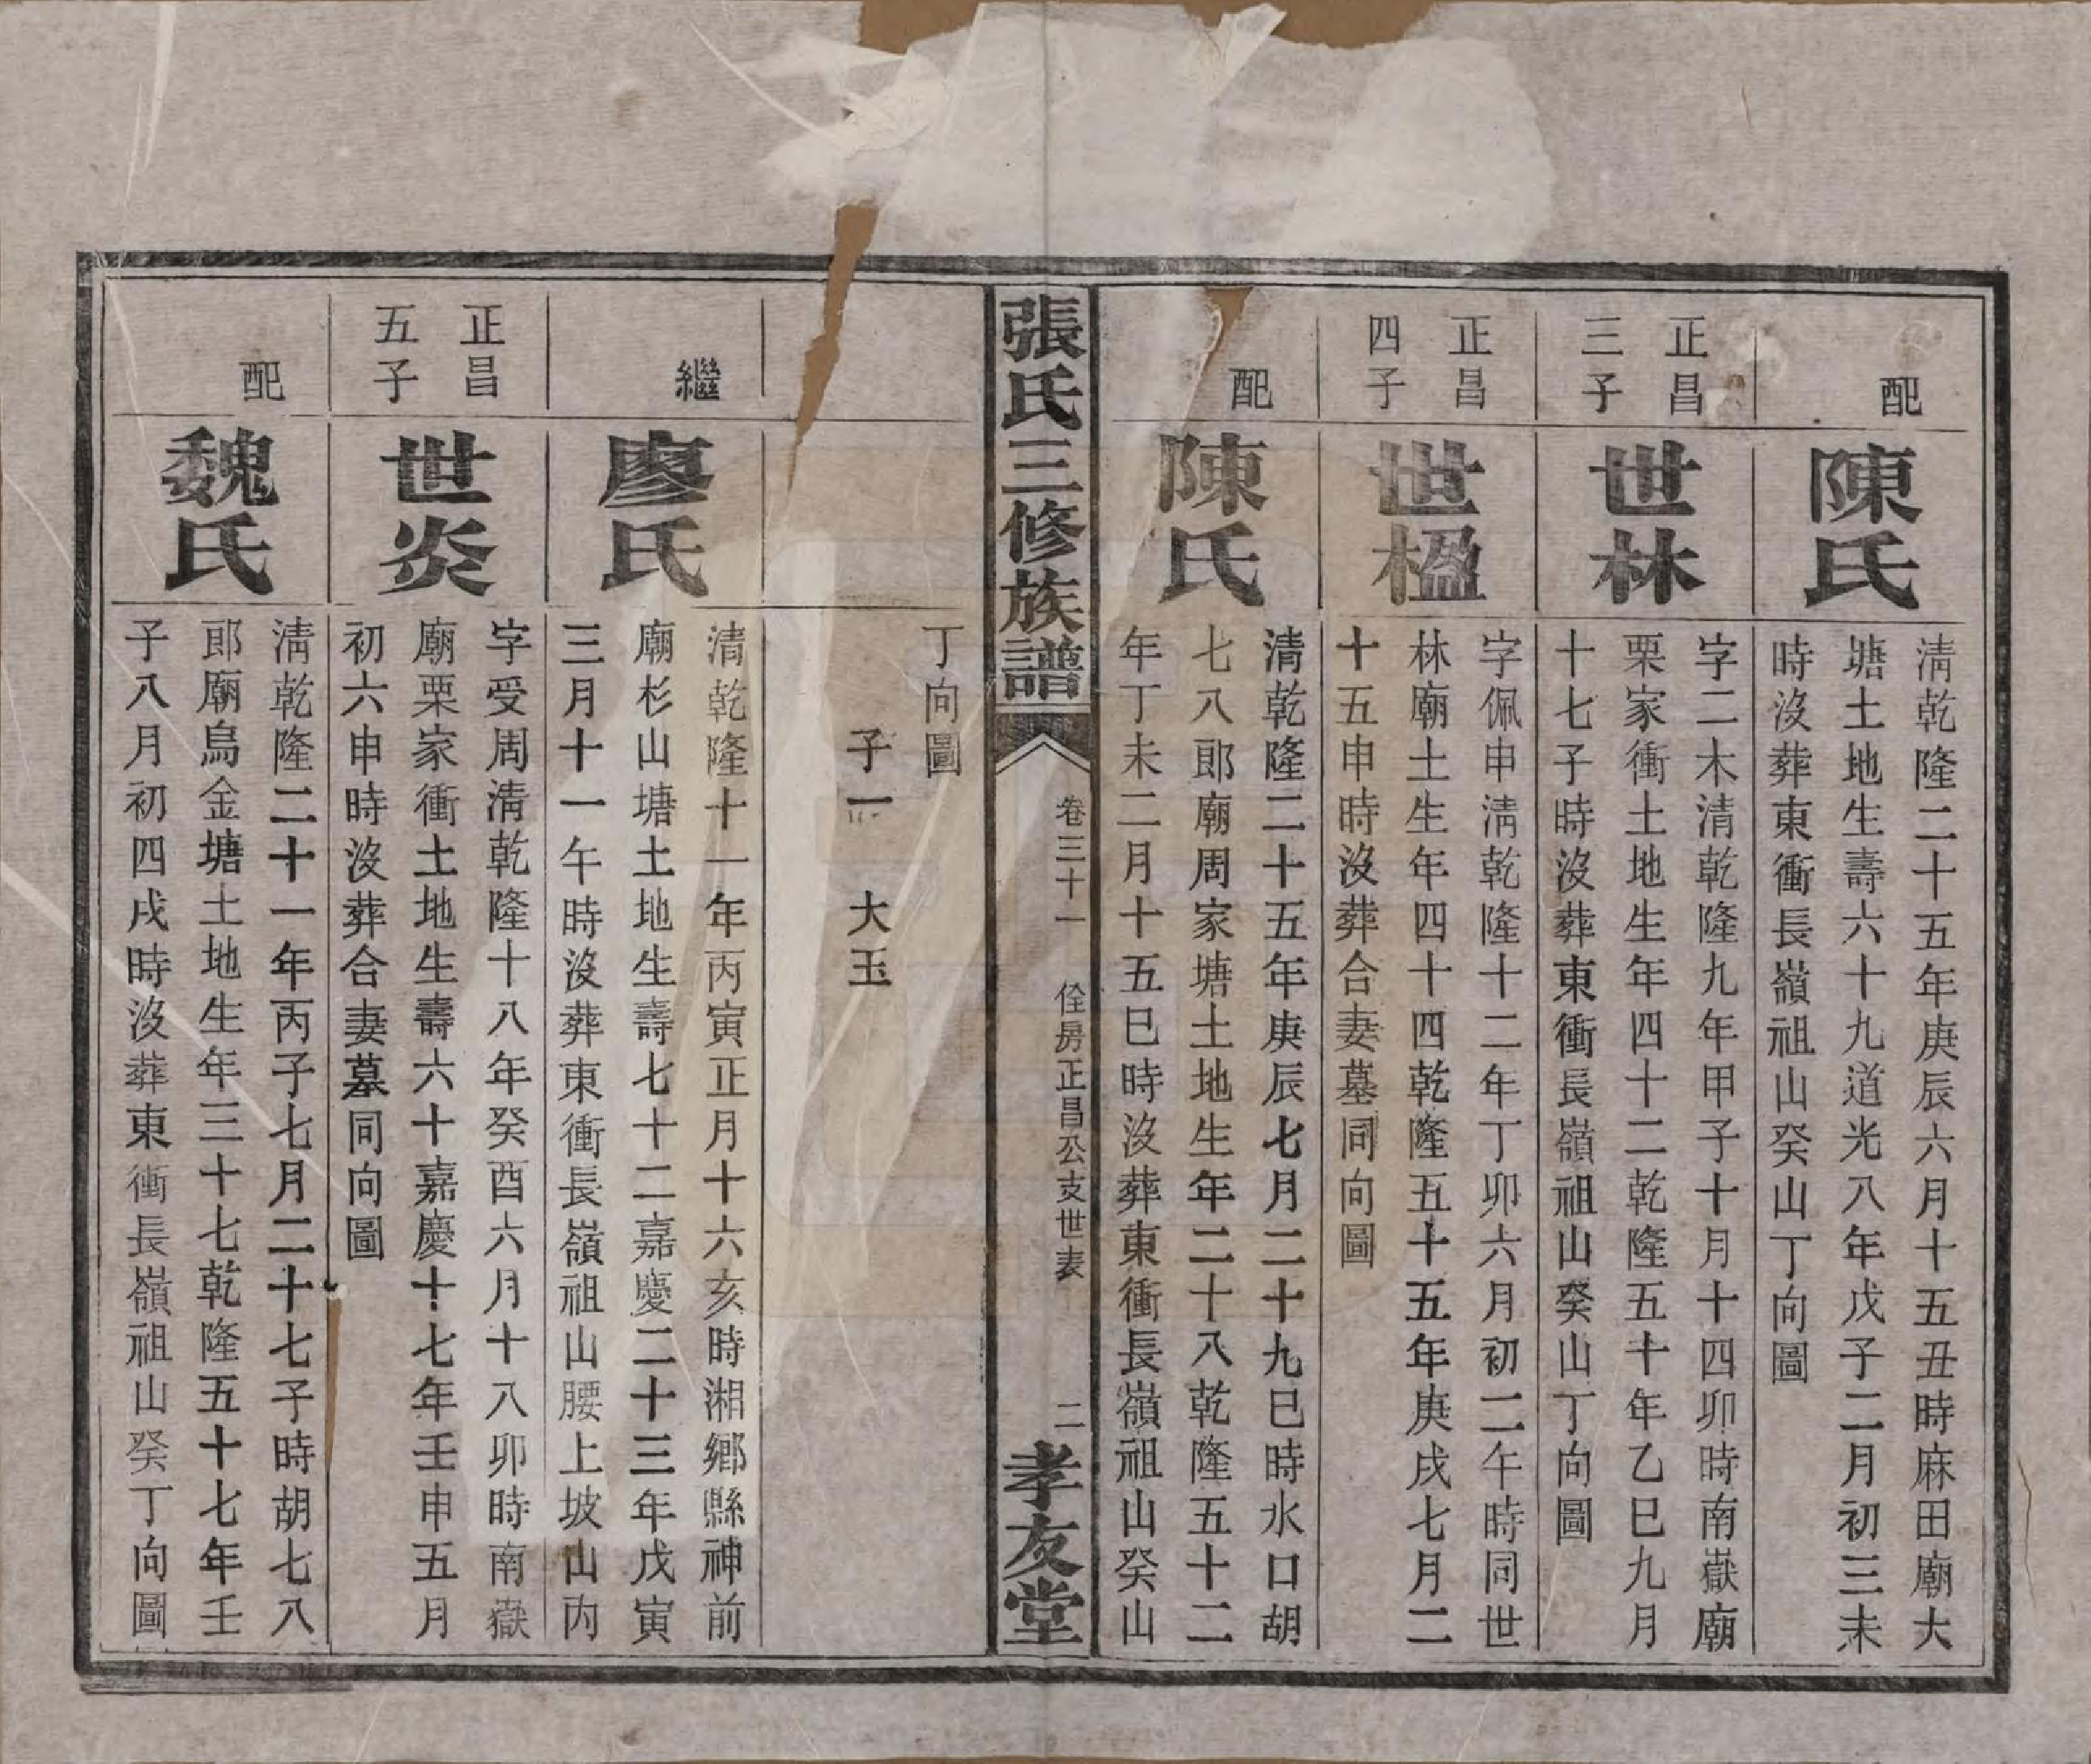 配
陳氏
淸乾隆二十五年庚辰六月十五丑時麻田廟大
塘土地生壽六十九道光八年戊子二月初三未
時沒葬東衝長嶺祖山癸山丁向圖
正昌
三子
世林
字二木淸乾隆九年甲子十月十四卯時南嶽廟
栗家衝土地生年四十二乾隆五十年乙巳九月
十七子時沒葬東衝長嶺祖山癸山丁向圖
正昌
四子
世楹
字佩申淸乾隆十二年丁卯六月初二午時同世
林廟土生年四十四乾隆五十五年庚戌七月二
十五申時沒葬合妻墓同向圖
配
陳氏
淸乾隆二十五年庚辰七月二十九巳時水口胡
七八郞廟周家塘土地生年二十八乾隆五十二
年丁未二月十五巳時沒葬東衝長嶺祖山癸山
張氏三修族譜
卷三十一
佺房正昌公支世表
二
孝友堂
丁向圖
子一 大玉
繼
廖氏
淸乾隆十一年丙寅正月十六亥時湘鄉縣神前
廟杉山塘土地生壽七十二嘉慶二十三年戊寅
三月十一午時沒葬東衝長嶺祖山腰上坡山丙
正昌
五子
世炎
字受周淸乾隆十八年癸酉六月十八卯時南嶽
廟栗家衝土地生壽六十嘉慶十七年壬申五月
初六申時沒葬合妻墓同向圖
配
魏氏
淸乾隆二十一年丙子七月二十七子時胡七八
郞廟烏金塘土地生年三十七乾隆五十七年壬
子八月初四戌時沒葬東衝長嶺祖山癸丁向圖